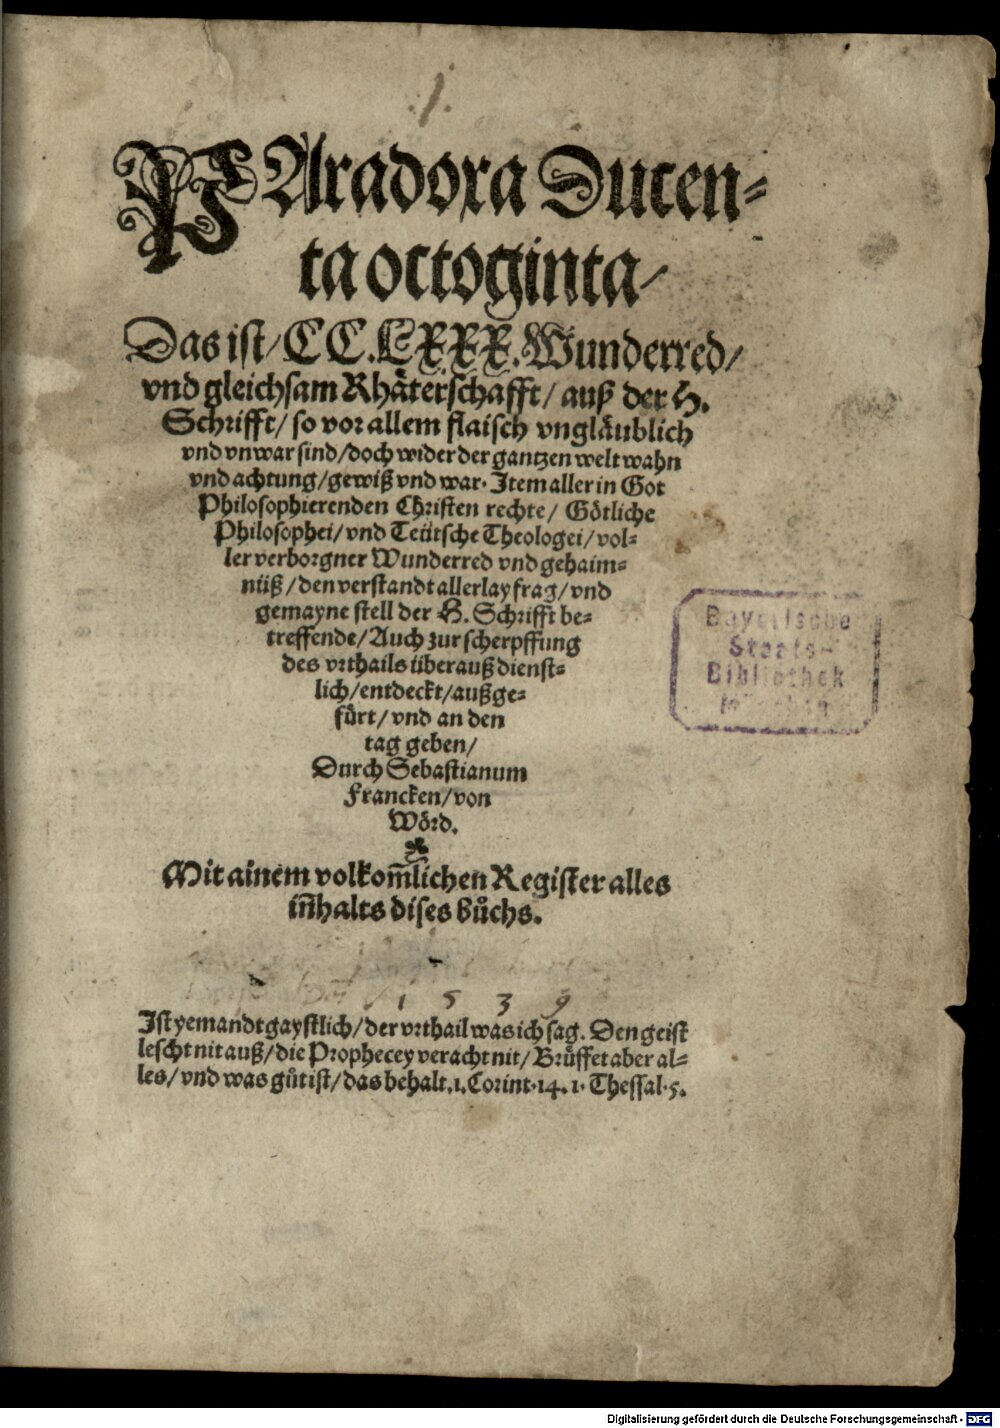 PAradoxa Ducen⸗
ta octoginta/
Das ist/ CC.LXXX. Wunderred/
vnd gleichsam Rhäterschafft/ auß der H.
Schrifft/ so vor allem flaisch vngläublich
vnd vnwar sind/ doch wider der gantzen welt wahn
vnd achtung/ gewiß vnd war. Item aller in Got
Philosophierenden Christen rechte/ Götliche
Philosophei/ vnd Teütsche Theologei/ vol⸗
ler verborgner Wunderred vnd gehaim⸗
nüß/ den verstandt allerlay frag/ vnd
gemayne stell der H. Schrifft be⸗
treffende/ Auch zur scherpffung
des vrthails überauß dienst⸗
lich/ entdeckt/ außge⸗
fürt/ vnd an den
tag geben/
Durch Sebastianum
Francken/ von
Wörd.
Mit ainem volkom̃lichen Register alles
iñhalts dises bůchs.
1539
Ist yemandt gaystlich/ der vrthail was ich sag. Den geist
lescht nit auß/ die Prophecey veracht nit/ Brůffet aber al⸗
les/ vnd was gůt ist/ das behalt. 1. Corint. 14. 1. Thessal. 5.
Bayerische
Staats-
Bibliothek
München
Digitalisierung gefördert durch die Deutsche Forschungsgemeinschaft - DFG